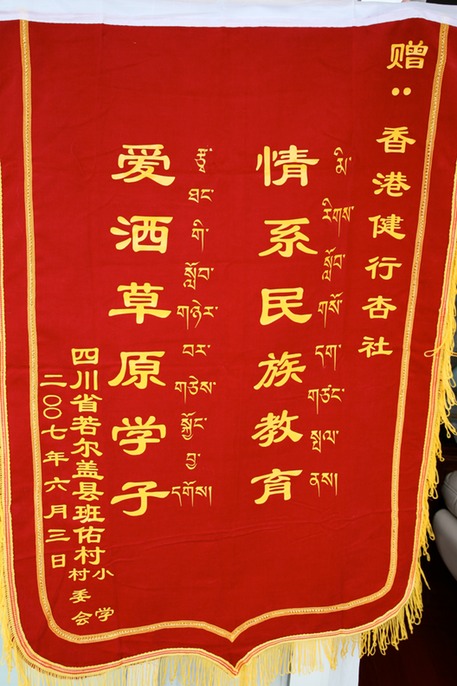 赠：香港健行杏社
情系民族教育
མི་རིགས་སློབ་གསོ་དག་གཙང་སྤྲལ་ནས།
爱洒草原学子
རྩྭ་ཐང་གི་སློབ་གཉེར་བར་གཅེས་སྐྱོང་བྱ་དགོས།
四川省若尔盖县班佑村小学
村委会
二〇〇七年六月三日